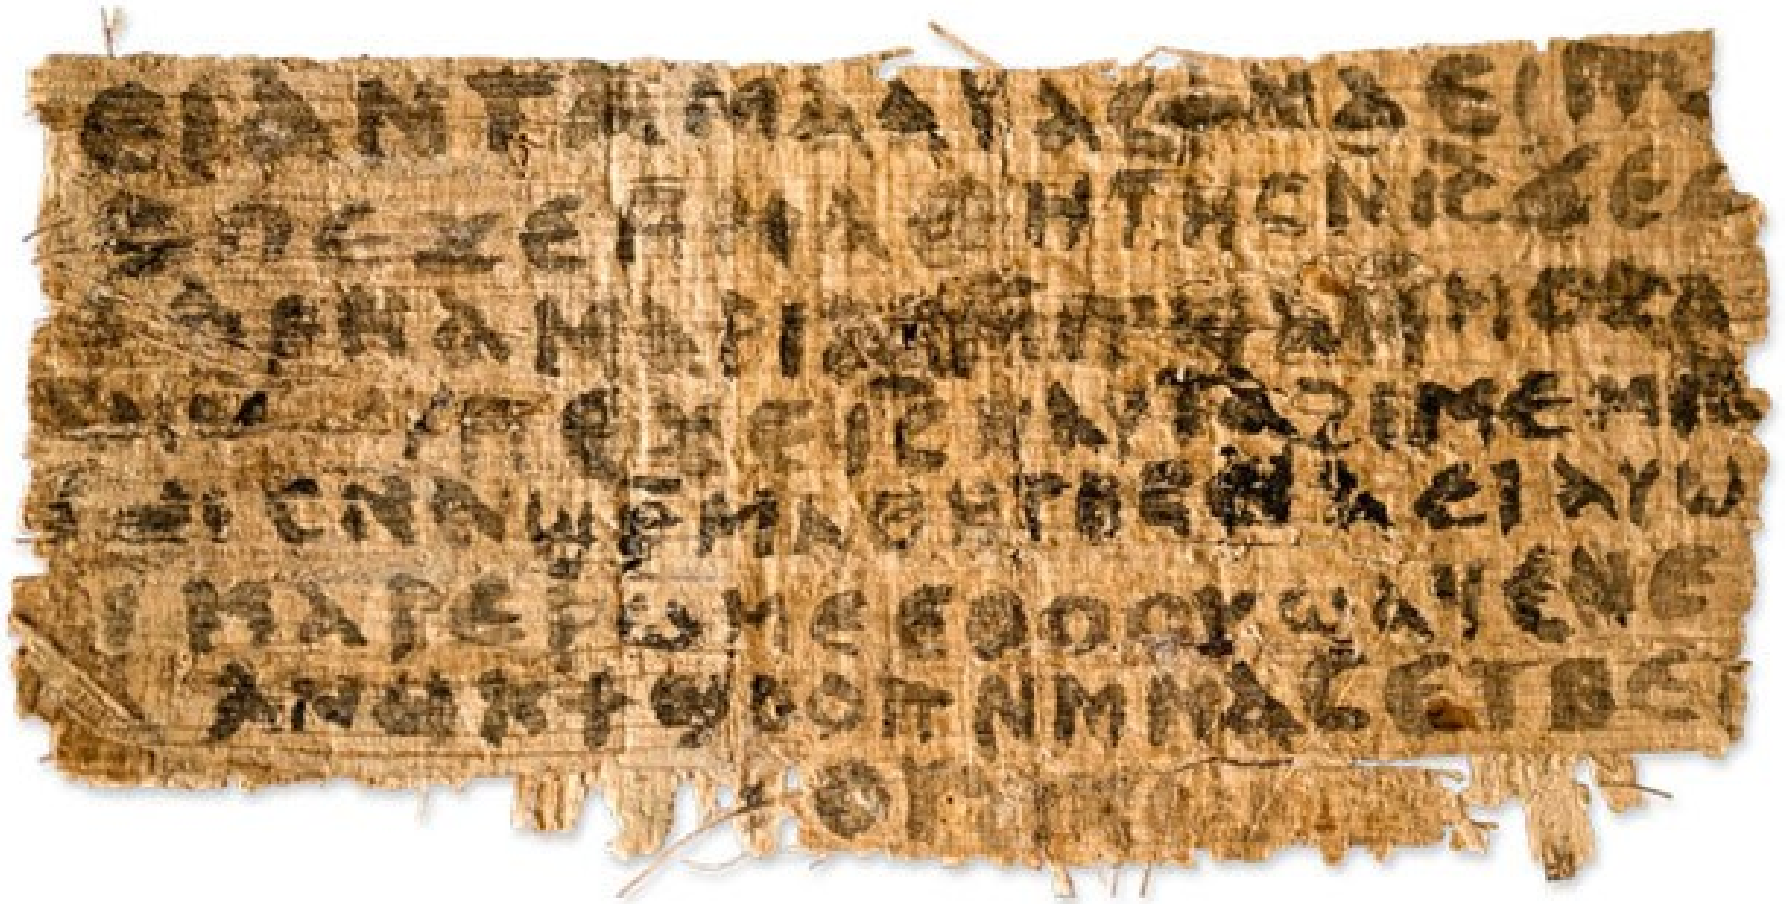 ⲉⲓ ⲁⲛ ⲧⲁⲙⲁⲁⲩ ⲁⲥϯ ⲛⲁⲉⲓ ⲡ
ⲥ ⲡⲉϫⲉ ⲙⲙⲁⲑⲏⲧⲏⲥ ⲛⲓⲥ ϫⲉ ⲥ
ⲁⲣⲛⲁ ⲙⲁⲣⲓⲁⲙ ⲙⲡϣⲁ ⲙⲙⲟⲥ ⲁ
ⲡⲉϫⲉ ⲓⲥ ⲛⲁⲩ ⲧⲁϩⲓⲙⲉ ⲙⲛ
ⲥⲛⲁϣⲣⲙⲁⲑⲏⲧⲏⲥ ⲛⲁⲉⲓ ⲁⲩⲱ
ⲓ ⲙⲁⲣⲉⲣⲱⲙⲉ ⲉⲑⲟⲟⲩ ϣⲁϥⲉ ⲛⲉ
ⲁⲛⲟⲕ ϯϣⲟⲟⲡ ⲛⲙⲙⲁⲥ ⲉⲧⲃⲉ